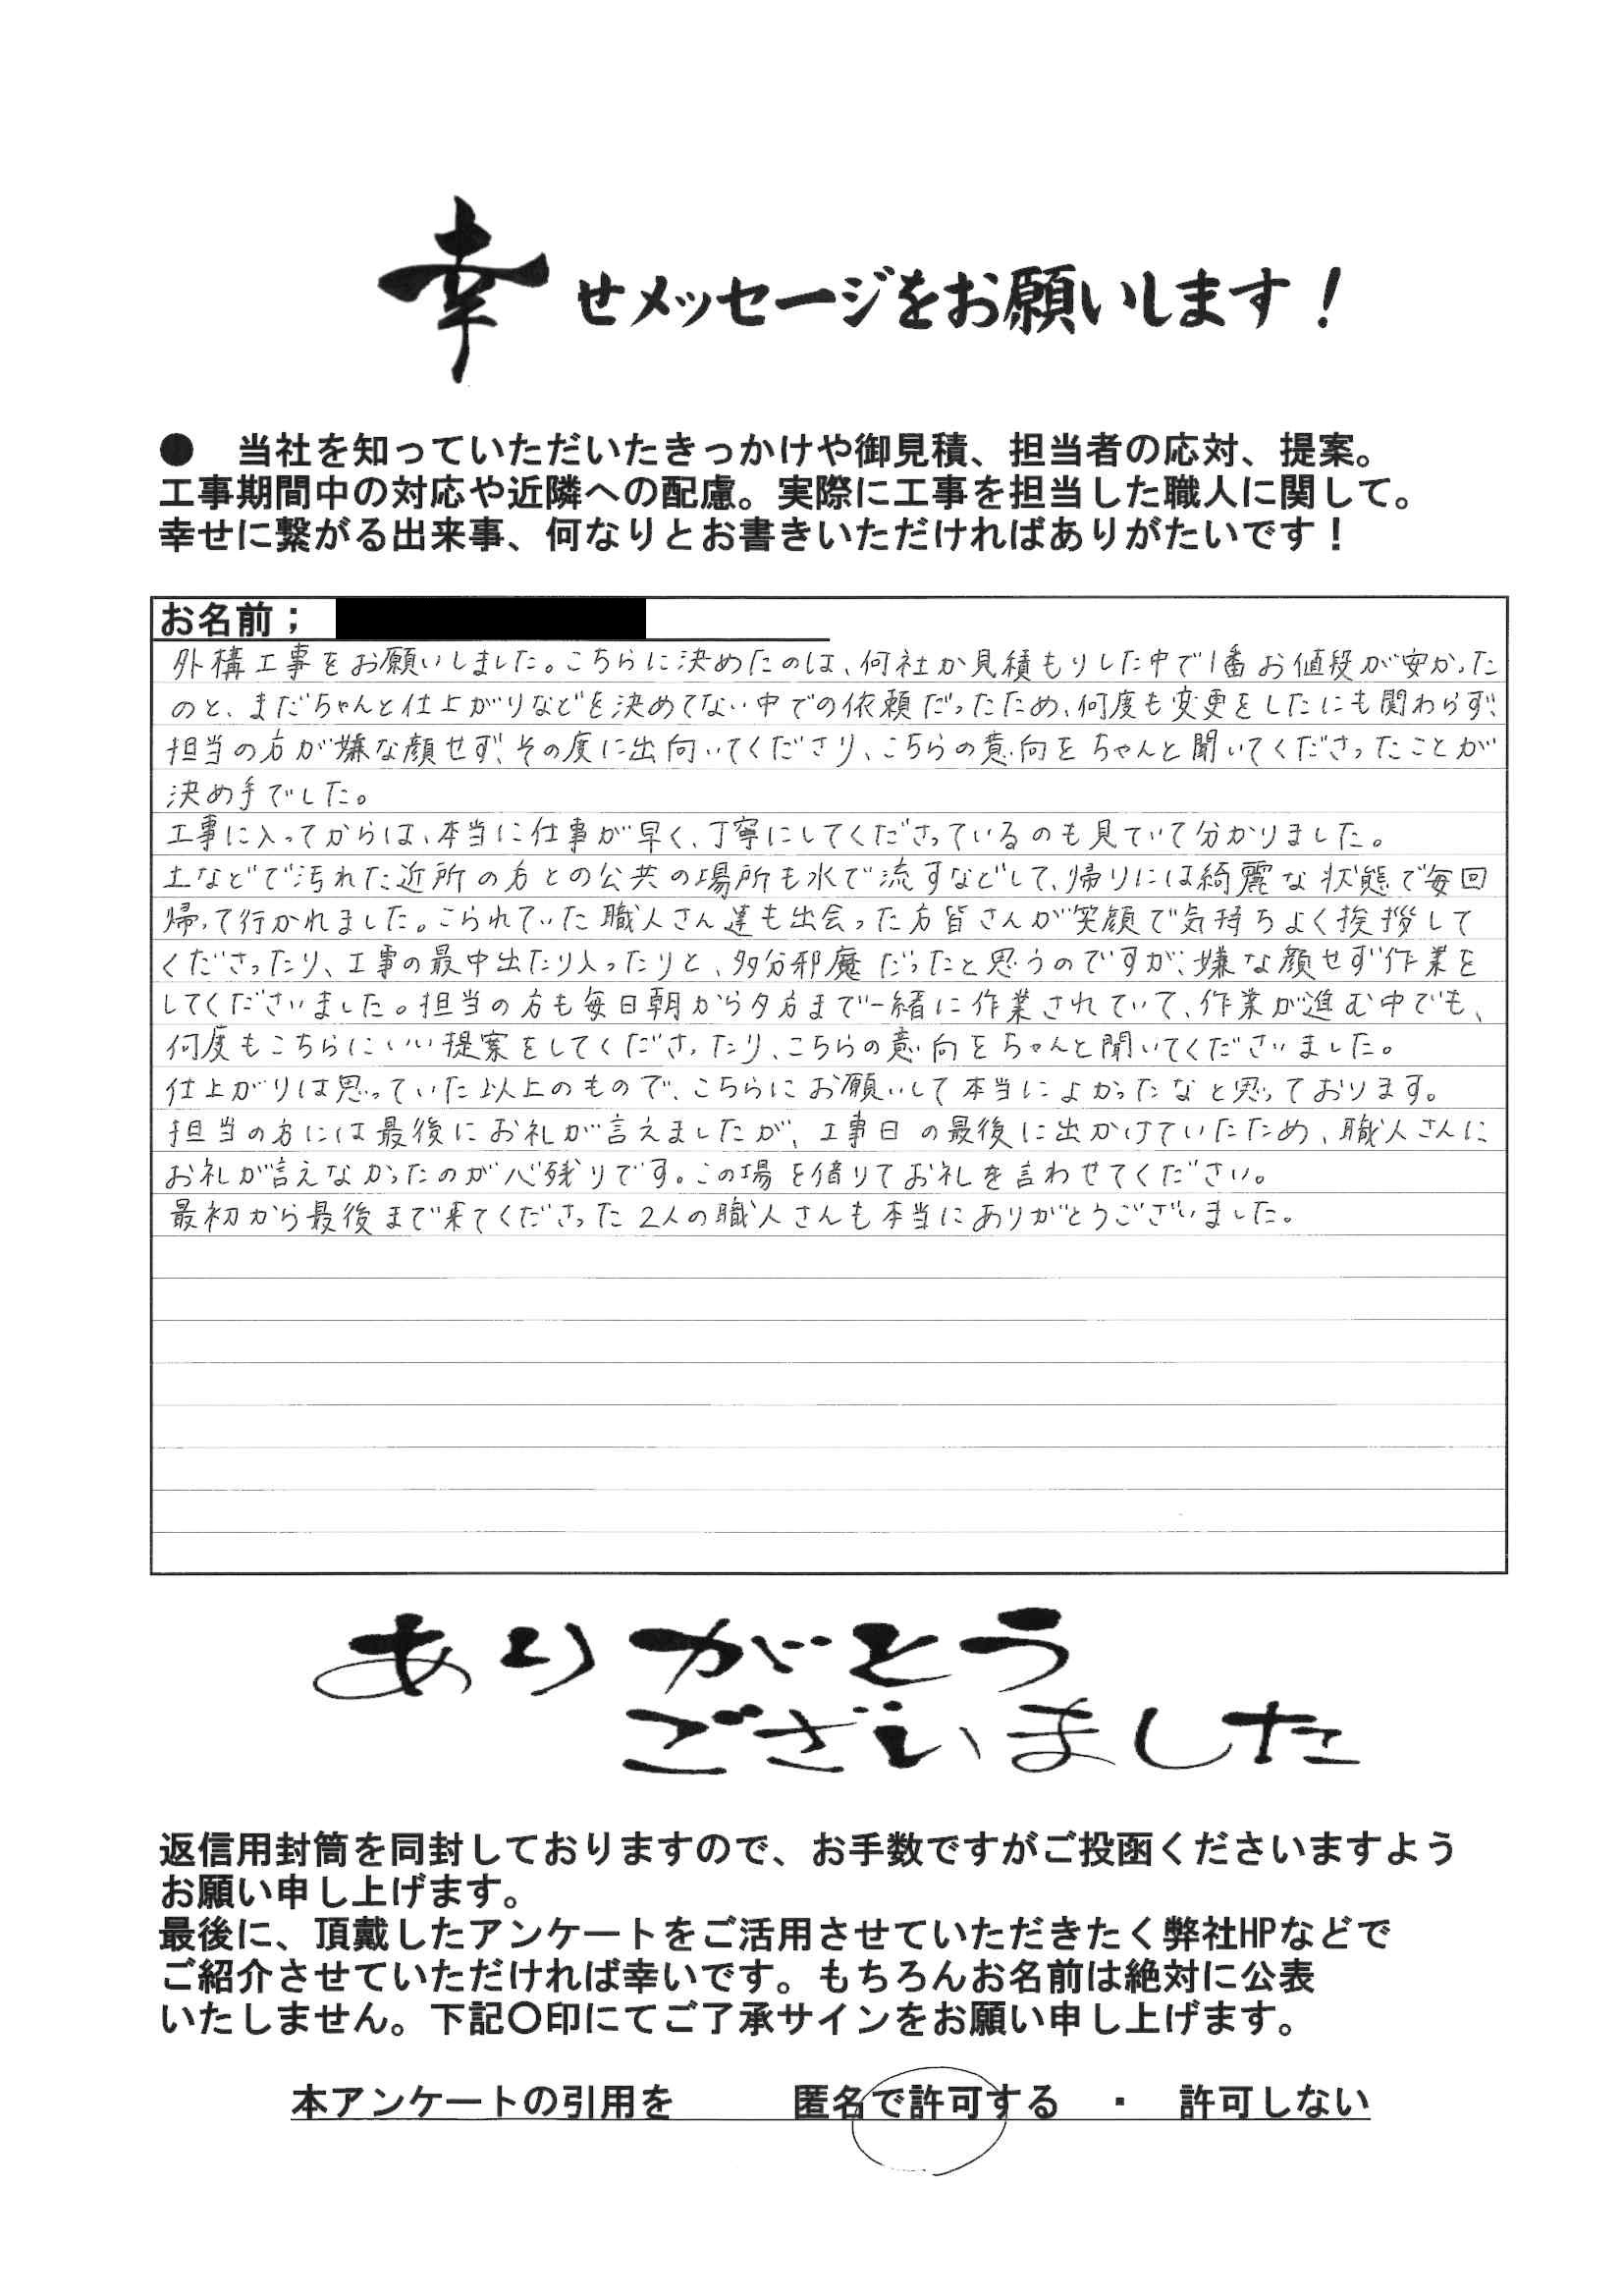 幸せメッセージをお願いします！
●　当社を知っていただいたきっかけや御見積、担当者の応対、提案。
工事期間中の対応や近隣への配慮。実際に工事を担当した職人に関して。
幸せに繋がる出来事、何なりとお書きいただければありがたいです！
お名前；
外構工事をお願いしました。こちらに決めたのは、何社か見積もりした中で1番お値段が安かった
のと、まだちゃんと仕上がりなどを決めてない中での依頼だったため、何度も変更をしたにも関わらず、
担当の方が嫌な顔せず、その度に出向いてくださり、こちらの意向をちゃんと聞いてくださったことが
決め手でした。
工事に入ってからは、本当に仕事が早く、丁寧にしてくださっているのも見ていて分かりました。
土などで汚れた近所の方との公共の場所も水で流すなどして、帰りには綺麗な状態で毎回
帰って行かれました。こられていた職人さん達も出会った方皆さんが笑顔で気持ちよく挨拶して
くださったり、工事の最中出たり入ったりと、多分邪魔だったと思うのですが、嫌な顔せず作業を
してくださいました。担当の方も毎日朝から夕方まで一緒に作業されていて、作業が進む中でも、
何度もこちらにいい提案をしてくださったり、こちらの意向をちゃんと聞いてくださいました。
仕上がりは思っていた以上のもので、こちらにお願いして本当によかったなと思っております。
担当の方には最後にお礼が言えましたが、工事日の最後に出かけていたため、職人さんに
お礼が言えなかったのが心残りです。この場を借りてお礼を言わせてください。
最初から最後まで来てくださった2人の職人さんも本当にありがとうございました。
ありがとう
ございました
返信用封筒を同封しておりますので、お手数ですがご投函くださいますよう
お願い申し上げます。
最後に、頂戴したアンケートをご活用させていただきたく弊社HPなどで
ご紹介させていただければ幸いです。もちろんお名前は絶対に公表
いたしません。下記〇印にてご了承サインをお願い申し上げます。
本アンケートの引用を　　　匿名で許可する　・　許可しない